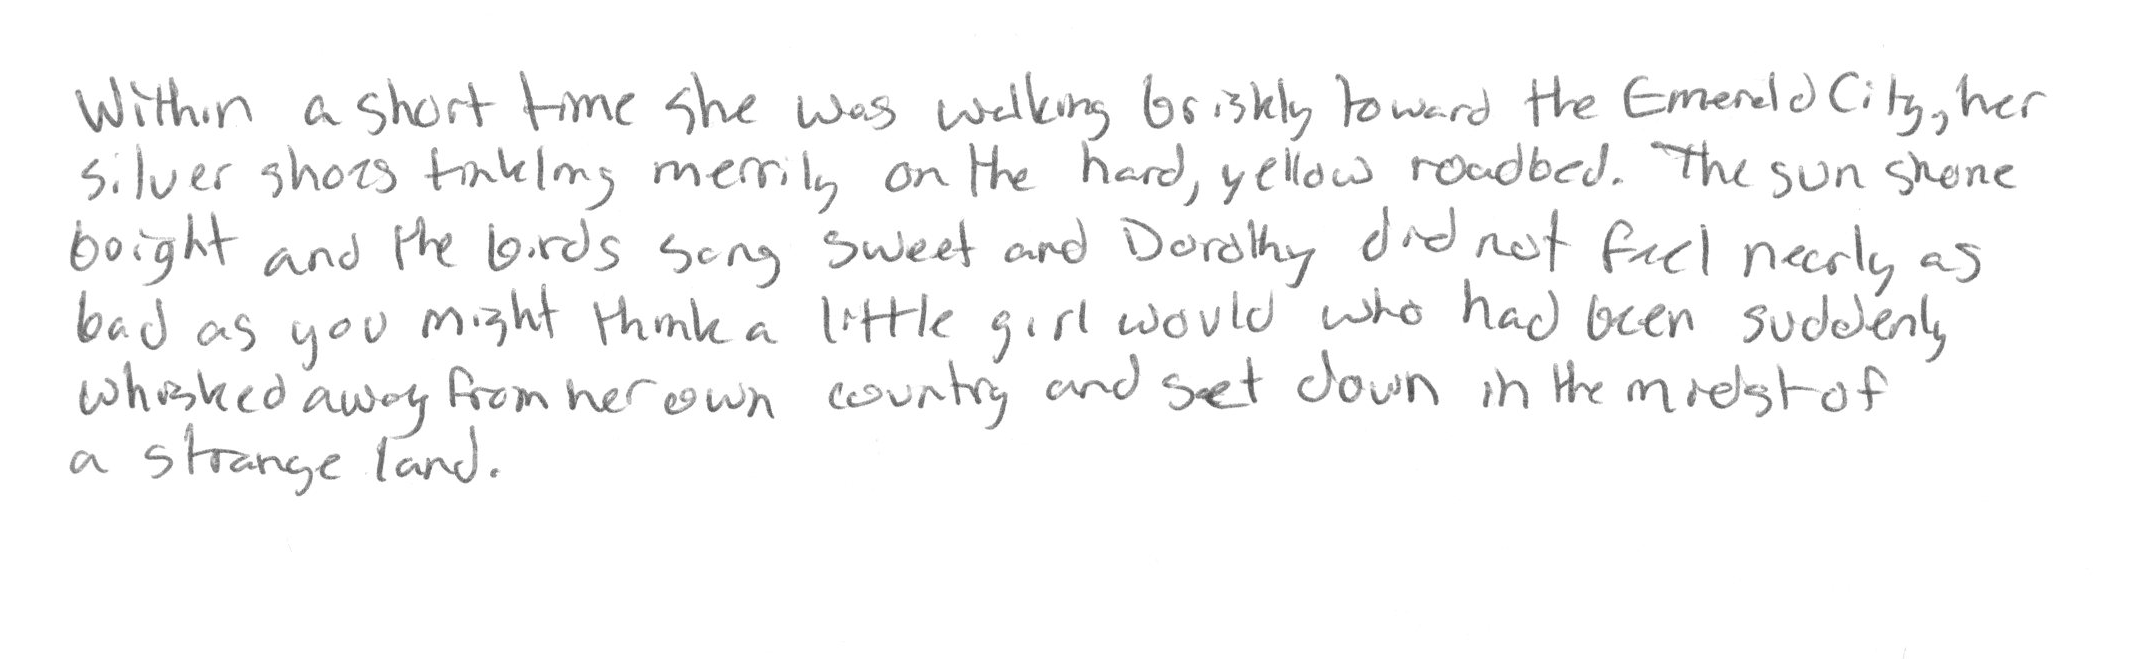 Within a short time she was walking briskly toward the Emerald City, her
silver shoes tinkling merrily on the hard, yellow roadbed. The sun shone
bright and the birds sang sweet and Dorothy did not feel nearly as
bad as you might think a little girl would who had been suddenly
whisked away from her own country and set down in the midst of
a strange land.